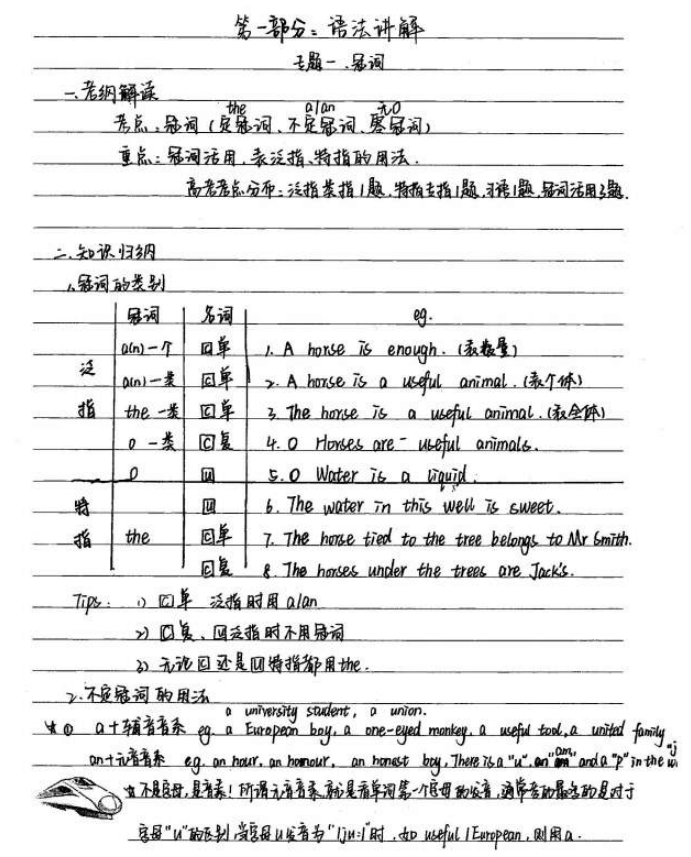 第一部分：语法讲解
专题一、冠词
一、考纲解读
the a/an 无0
考点：冠词（定冠词、不定冠词、零冠词）
重点：冠词活用、表泛指、特指的用法．
高考考点分布：泛指类指1题，特指专指1题，习语1题，冠词活用3题．
二、知识归纳
1、冠词的类别
冠词 名词 eg.
泛指
a(n)一个 C单 1. A horse is enough.（表数量）
a(n)一类 C单 2. A horse is a useful animal.（表个体）
the 一类 C单 3. The horse is a useful animal.（表全体）
0 一类 C复 4. 0 Horses are useful animals.
0 U 5. 0 Water is a liquid.
特指
U 6. The water in this well is sweet.
the C单 7. The horse tied to the tree belongs to Mr Smith.
C复 8. The horses under the trees are Jack's.
Tips: 1) C单 泛指时用a/an
2) C复、U泛指时不用冠词
3) 无论C还是U特指都用the．
2、不定冠词的用法
a university student, a union.
☆① a+辅音音素 eg. a European boy, a one-eyed monkey, a useful tool, a united family
an+元音音素 e.g. an hour, an honour, an honest boy, There is a "u", an "m" and a "p" in the
☆不是字母，是音素！所谓元音音素就是看单词第一个字母的发音，通常考的最多的是对于
字母"u"的区别，当字母u发音为"[ju:]"时，如useful/European，则用a．